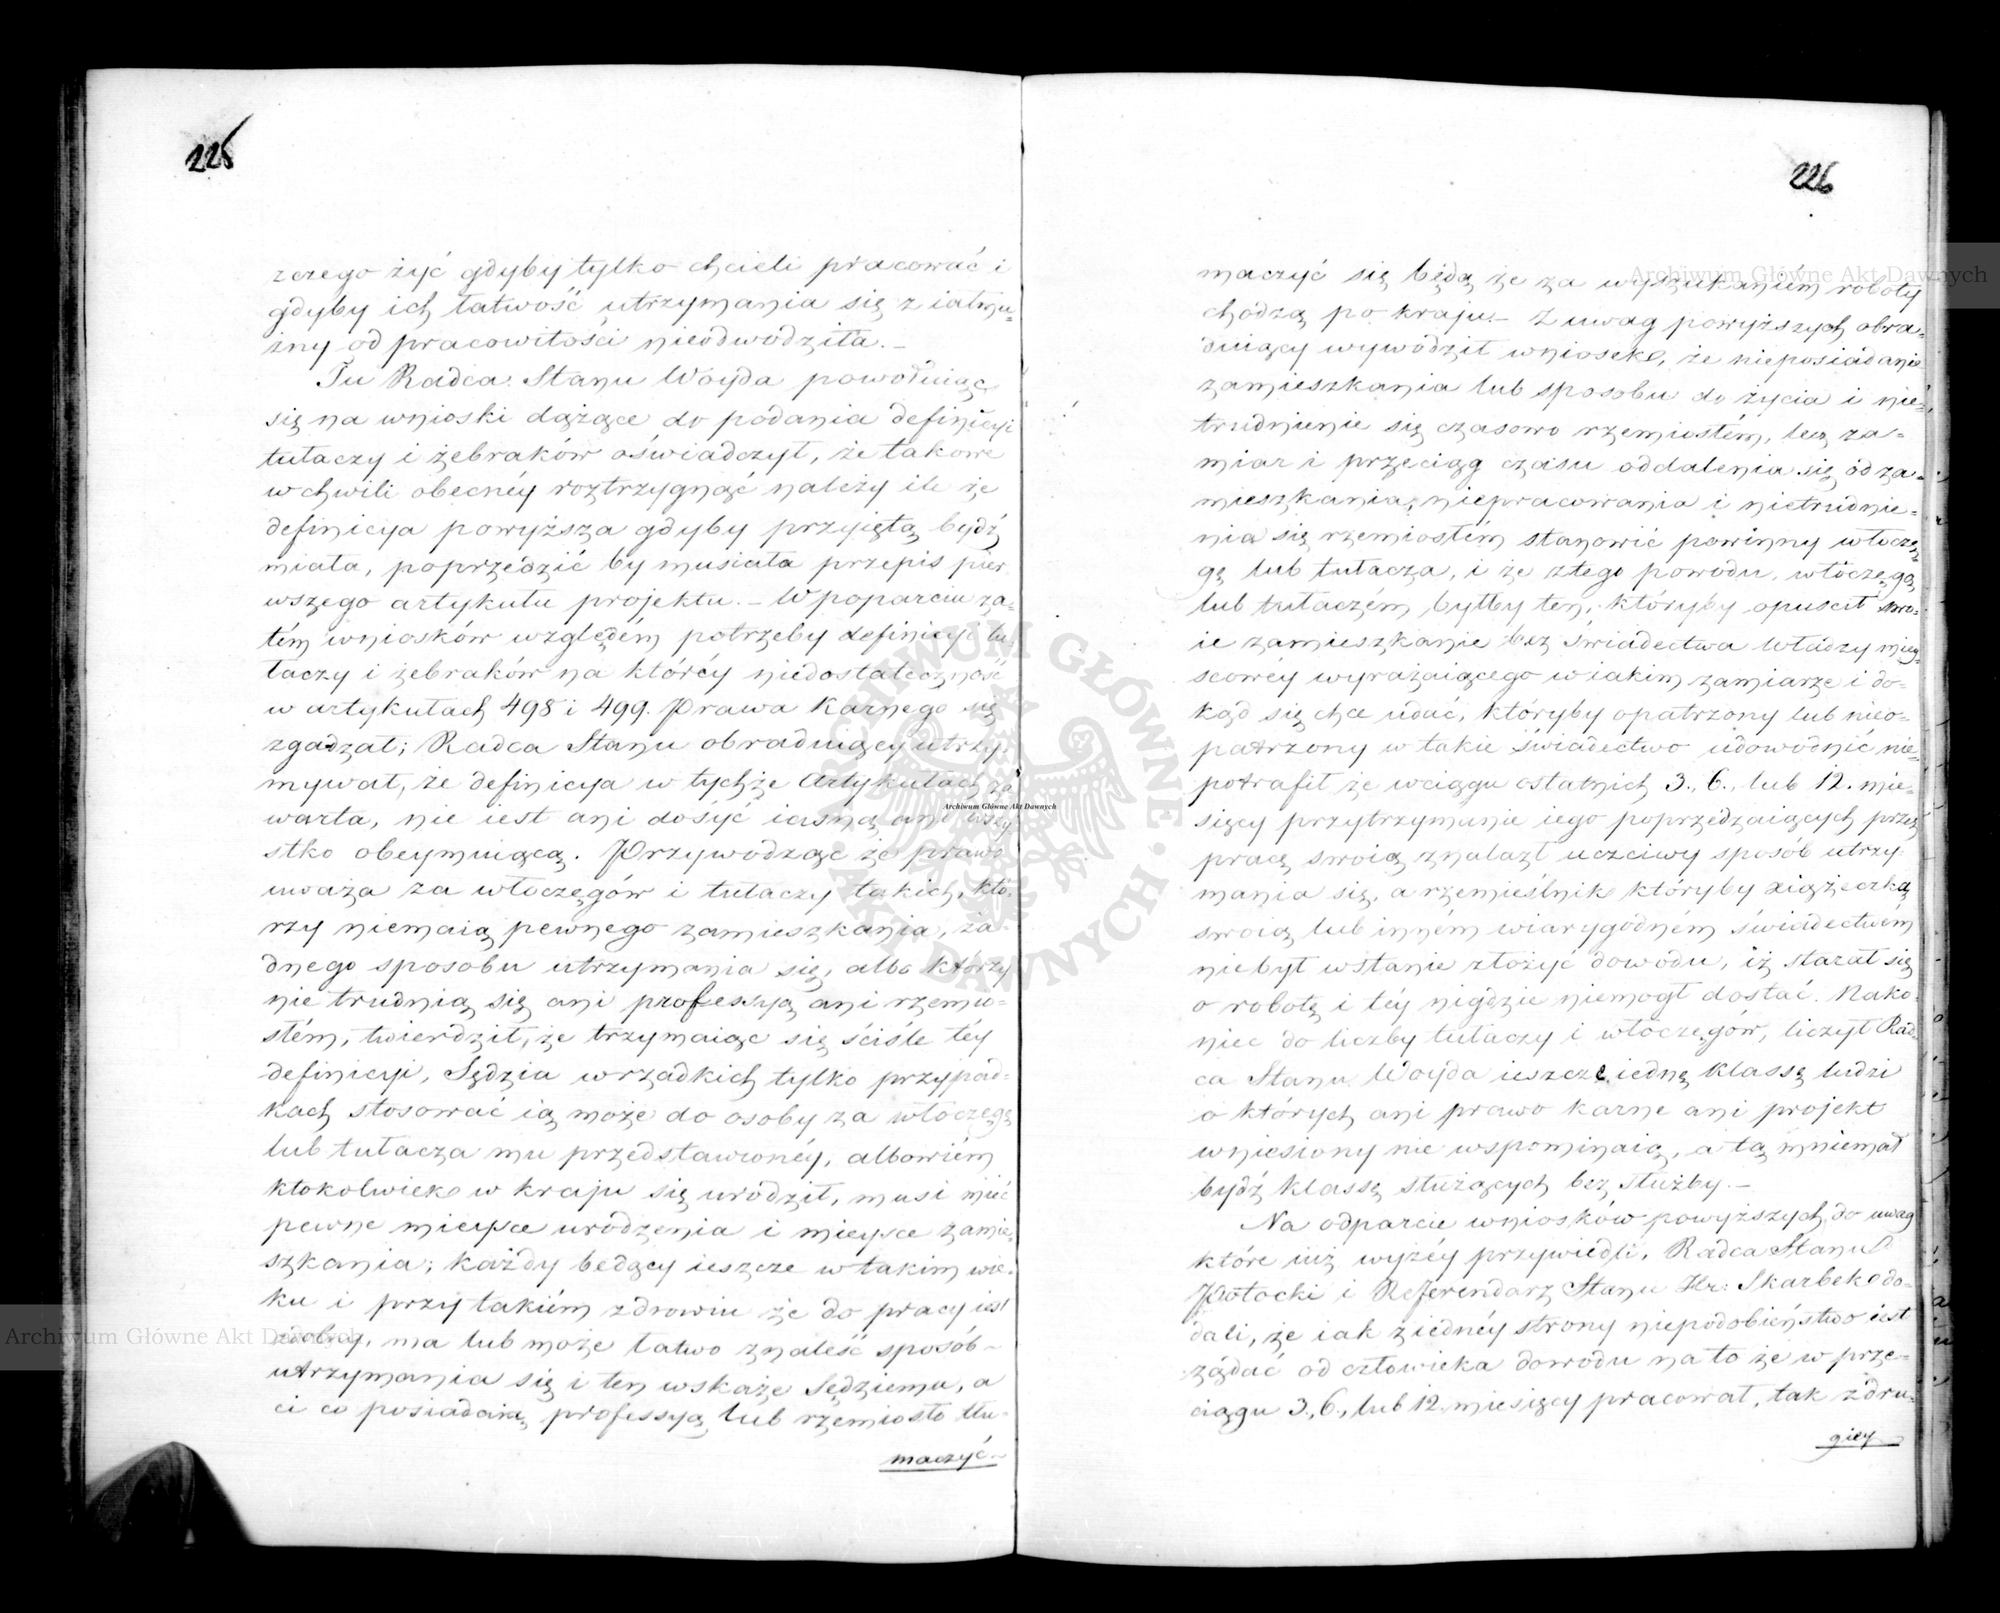 225
zczego żyć gdyby tylko chcieli pracować i
gdyby ich łatwość utrzymania się z iałmu=
żny od pracowitości nieodwodziła. —
Tu Radca Stanu Woyda powołuiąc
się na wnioski dążące do podania definicyi
tułaczy i żebraków oświadczył, że takowe
w chwili obecnéy roztrzygnąć należy ile że
definicya powyższa gdyby przyiętą bydź
miała, poprzedzić by musiała przepis pier
wszego artykułu projektu. — W poparciu za=
tém wniosków względém potrzeby definicyi tu
łaczy i żebraków na któréy niedostateczność
w artykułach 498 i 499. Prawa Karnego się
zgadzał; Radca Stanu obraduiący utrzy=
mywał, że definicya w tychże Artykułach za
warta, nie iest ani dosyć iasną ani wszy
stko obeymuiącą. Przywodząc że prawo
uważa za włoczęgów i tułaczy takich, któ=
rzy niemaią pewnego zamieszkania, ża=
dnego sposobu utrzymania się, albo którzy
nie trudnią się ani professyą ani rzemio=
słém, twierdził, że trzymaiąc się ściśle téy
definicyi, Sędzia w rzadkich tylko przypad=
kach stosować ią może do osoby za włoczęgę
lub tułacza mu przedstawionéy, albowiém
ktokolwiek w kraju się urodził, musi mieć
pewne mieysce urodzenia i mieysce zamie=
szkania; każdy będący ieszcze w takim wie=
ku i przy takiém zdrowiu że do pracy iest
zdolny, ma lub może łatwo znaleść sposób
utrzymania się i ten wskaże Sędziemu, a
ci co posiadaią professyą lub rzemiosło tłu=
maczyć
226
maczyć się będą że za wyszukaniém roboty
chódzą po kraju. — Z uwag powyższych obra=
duiący wywodził wniosek, że nieposiadanie
zamieszkania lub sposobu do życia i nie=
trudnienie się czasowo rzemiosłém, lecz za=
miar i przeciąg czasu oddalenia się od za=
mieszkania, niepracowania i nietrudnie=
nia się rzemiosłém stanowić powinny włoczę=
gę lub tułacza, i że z tego powodu, włoczęgą
lub tułaczém byłby ten, któryby opuscił swo=
ie zamieszkanie bez świadectwa Władzy miey=
scowéy wyrażaiącego w iakim zamiarze i do=
kąd się chce udać, któryby opatrzony lub nieo=
patrzony w takie świadectwo udowodnić nie=
potrafił że w ciągu ostatnich 3., 6., lub 12. mie=
sięcy przytrzymanie iego poprzedzaiących przez
pracę swoią znalazł uczciwy sposób utrzy=
mania się, a rzemieślnik któryby xiążeczką
swoią lub inném wiarygódném świadectwém
nie był w stanie złożyć dowodu, iż starał się
o robotę i téy nigdzie niemogł dostać. Nako=
niec do liczby tułaczy i włoczęgów, liczył Rad=
ca Stanu Woyda ieszcze iednę klassę ludzi
o których ani prawo karne ani projekt
wniesiony nie wspominaią, a tą mniemał
bydź klassę służących bez służby. —
Na odparcie wniosków powyższych do uwag
które iuż wyżéy przywiedli, Radca Stanu
Potocki i Referendarz Stanu Hr: Skarbek do=
dali, że iak z iednéy strony niepodobieństwo iest
żądać od człowieka dowodu na to że w prze=
ciągu 3., 6., lub 12. miesięcy pracował, tak z dru=
giey
Archiwum Główne Akt Dawnych
Archiwum Główne Akt Dawnych
Archiwum Główne Akt Dawnych
ARCHIWUM GŁÓWNE · AKT DAWNYCH ·